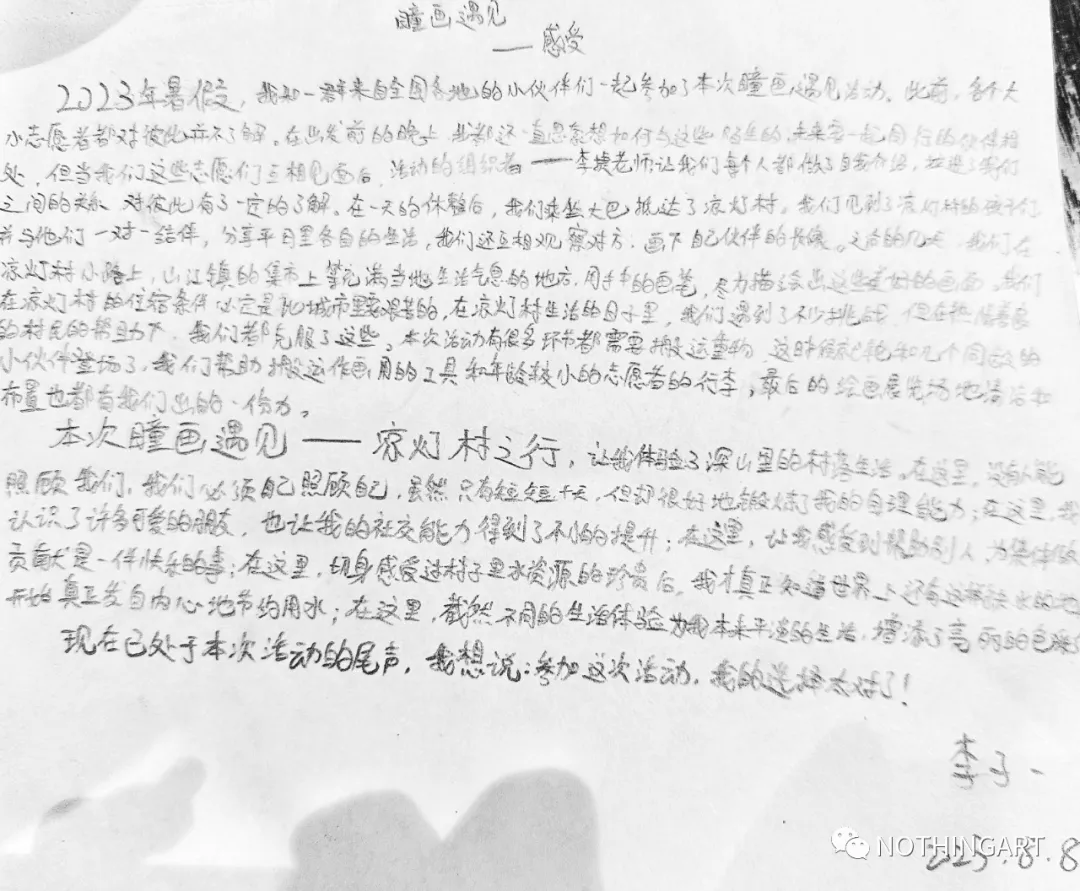 瞳画遇见
——感受
2023年暑假,我和一群来自全国各地的小伙伴们一起参加了本次瞳画遇见活动。此前,各个大
小志愿者都对彼此并不了解。在出发前的晚上,我都还一直思索想如何与这些陌生的未来要一起同行的伙伴相
处,但当我们这些志愿们互相见面后,活动的组织者——李捷老师让我们每个人都做了自我介绍,拉进了我们
之间的关系,对彼此有了一定的了解。在一天的休整后,我们乘坐大巴抵达了凉灯村。我们见到了凉灯村的孩子们
并与他们一对一结伴,分享平日里各自的生活,我们还互相观察对方,画下自己伙伴的长像。之后的几天,我们在
凉灯村小路上,山江镇的集市上等充满当地生活气息的地方,用手中的画笔,尽力描绘出这些美好的画面,我们
在凉灯村的住宿条件必定是比城市里要艰苦的,在凉灯村生活的日子里,我们遇到了不少挑战,但在热情善良
的村民的帮助下,我们都克服了这些。本次活动有很多环节都需要搬运重物,这时候就轮和几个同龄的
小伙伴登场了,我们帮助搬运作画用的工具和年龄较小的志愿者的行李,最后的绘画展览场地清洁和
布置也都有我们出的一份力。
本次瞳画遇见——凉灯村之行,让我体验了深山里的村落生活。在这里,没有人能
照顾我们,我们必须自己照顾自己,虽然只有短短十天,但却很好地锻炼了我的自理能力;在这里,我
认识了许多可爱的朋友,也让我的社交能力得到了不小的提升;在这里,让我感受到帮助别人,为集体做
贡献是一件快乐的事;在这里,切身感受过村子里水资源的珍贵后,我才真正知道世界上还有这样缺水的地
开始真正发自内心地节约用水;在这里,截然不同的生活体验为我本来平淡的生活,增添了亮丽的色彩
现在已处于本次活动的尾声,我想说:参加这次活动,我的选择太对了!
李子一
2023.8.8
NOTHINGART